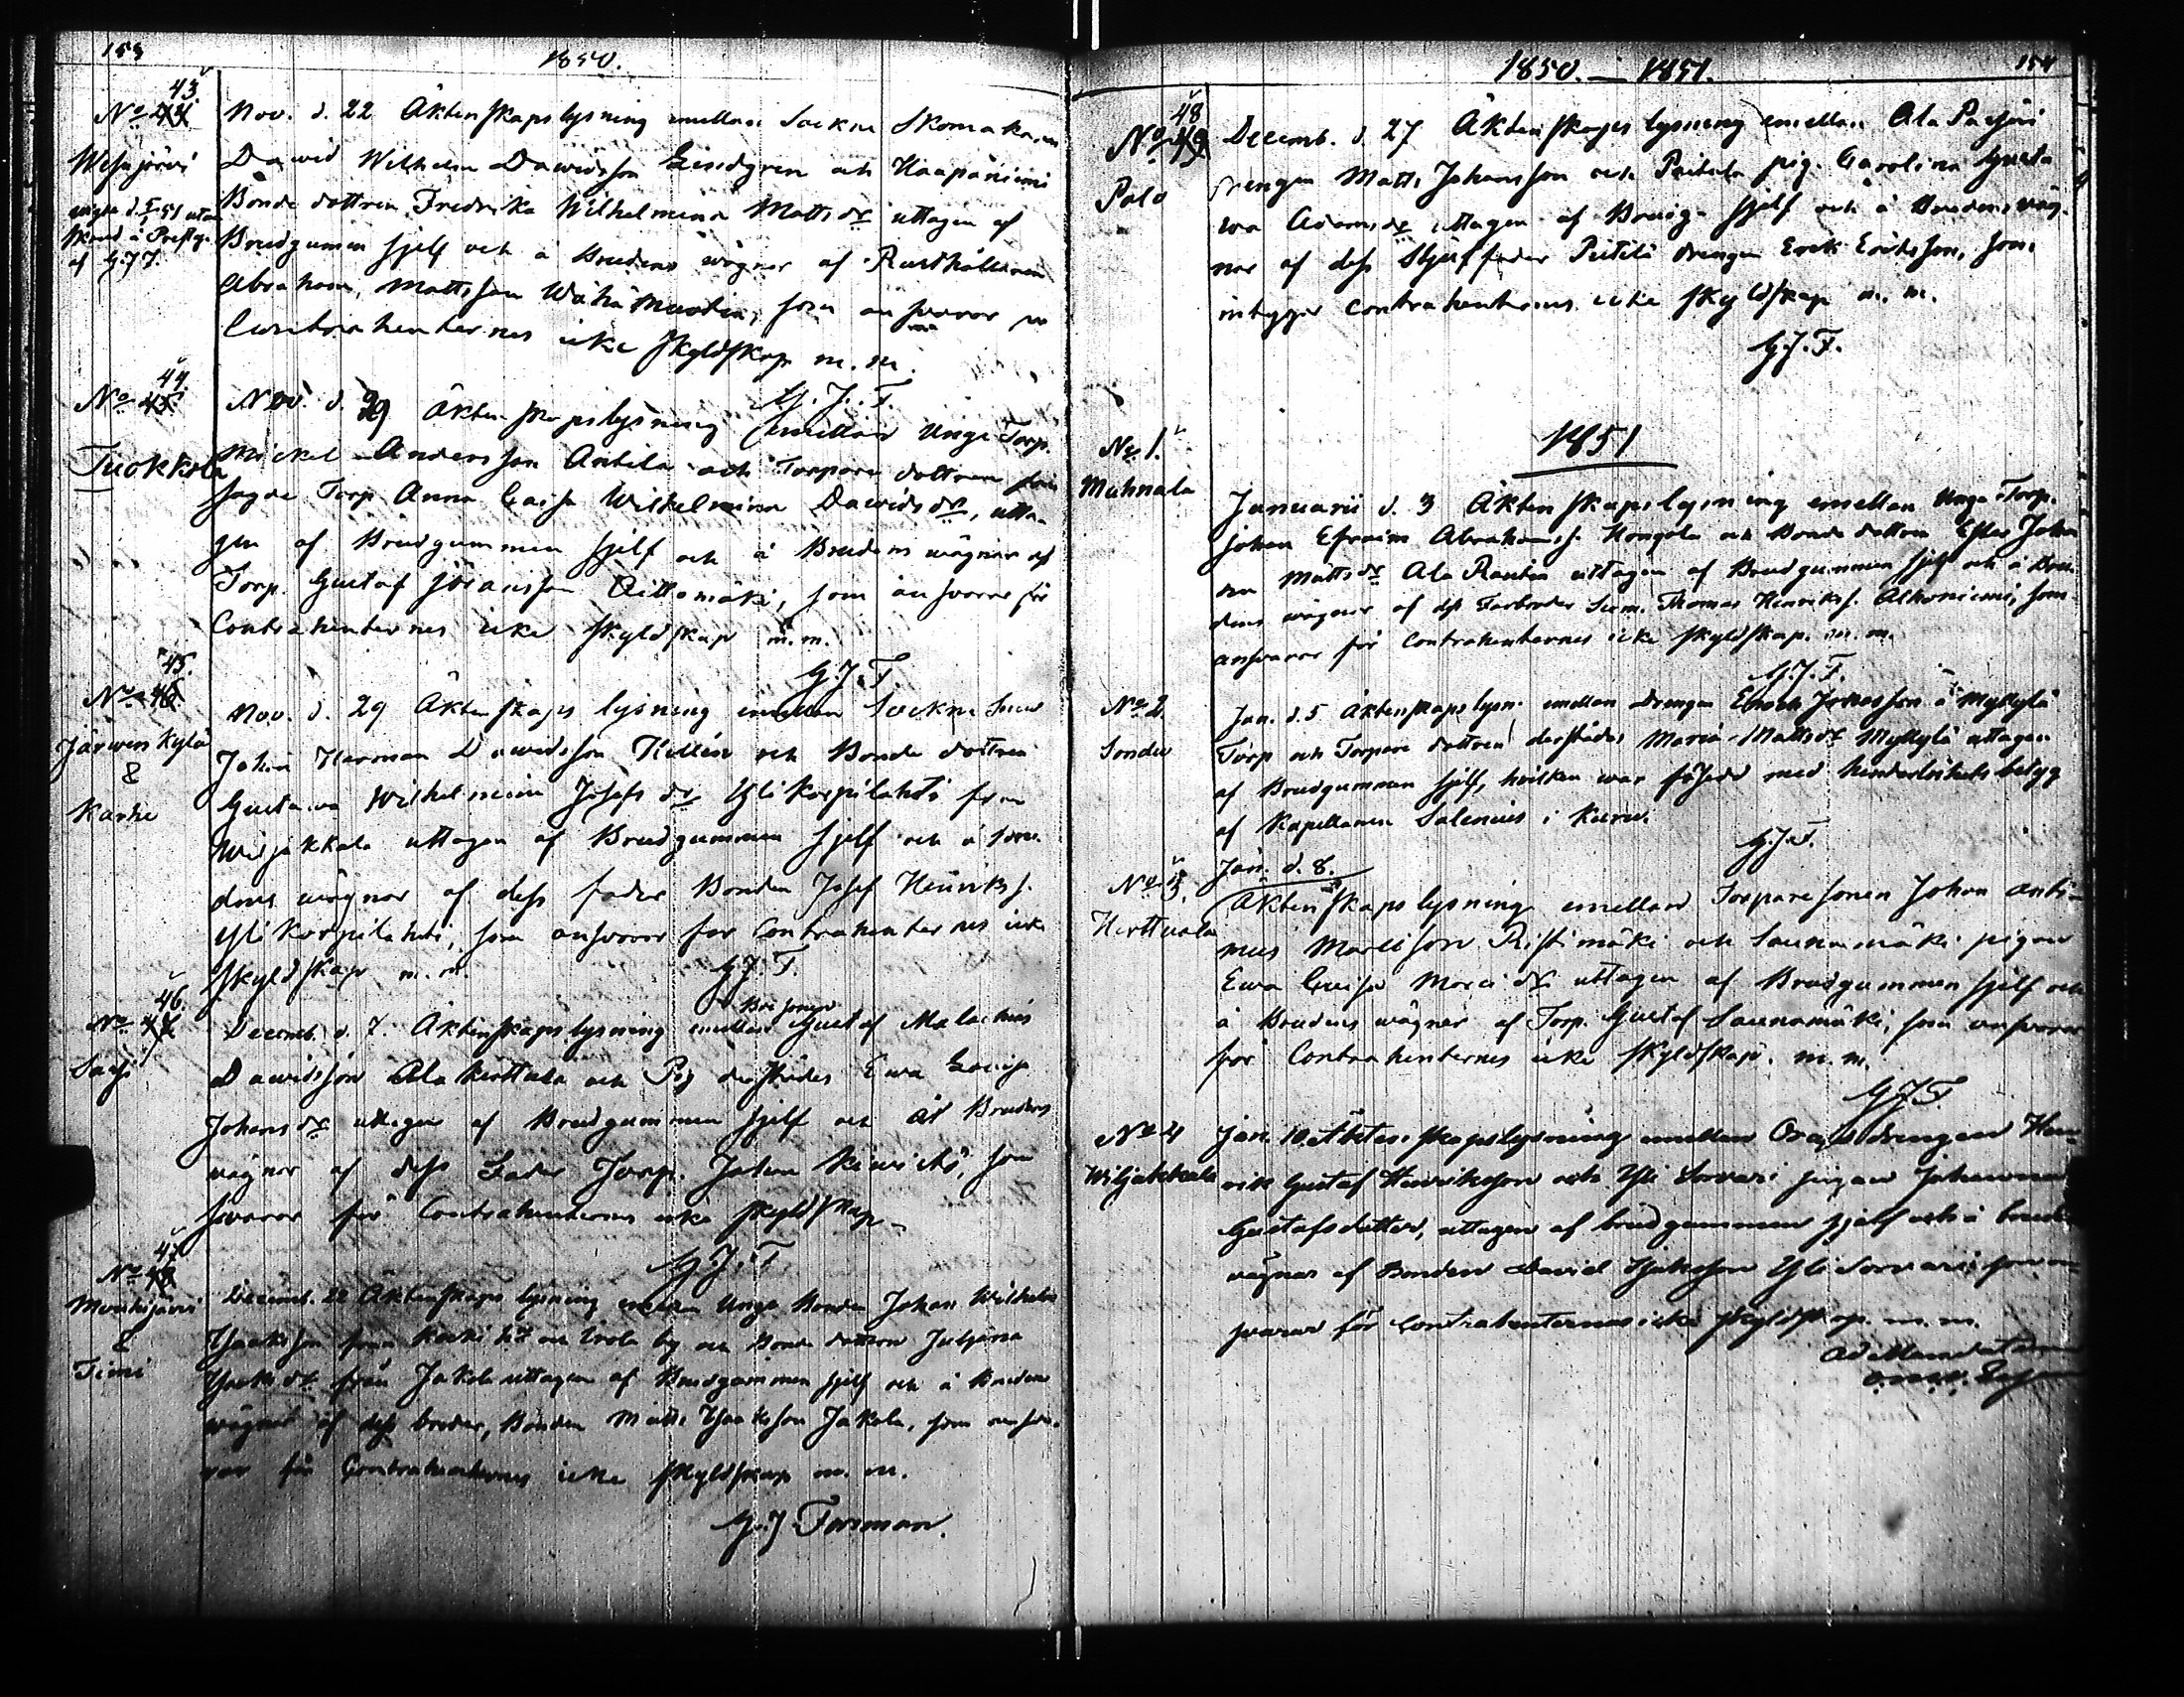 153
1850.
43
No 44
Wesajärvi
Nov. d. 22 Äktenskapslysning emellan Sockne Skomakaren
Dawid Wilhelm Dawidsson Lindgren och Haapaniemi
Bonde dottren Fredrika Wilhelmina Mattsdr uttagen af
Brudgumen sjelf och å Brudens wägnar af Rusthållaren
Abraham Mattsson Wähä Muotia, som answarar
Contrahenternes icke skyldskap m. m.
G. J. F.
44.
No 45
Tuokkola
Nov. d. 29 Äktenskapslysning emellan Unge Torp.
Mickel Andersson Anttila och Torpare dottren
Torp. Anna Caisa Wilhelmina Dawidsdr, utta-
gen af Brudgummen sjelf och å Brudens wägnar af
Torp. Gustaf Göransson Aittomäki, som answarar för
Contrahenternes icke skyldskap m. m.
G. J. F.
45.
No 46
Järwenkylä
&
Karhe
Nov. d. 29 Äktenskaps lysning emellan Sockne
Johan Herman Dawidsson Hellén och Bonde dottren
Gustawa Wilhelmina Josefsdr Yli Korpilahti från
Wiljakkala uttagen af Brudgummen sjelf och å Bru-
dens wägnar af dess fader Bonden Josef Henrikss.
Yli Korpilahti, som answarar för Contrahenternes icke
skyldskap m. m.
G. J. F.
46.
No 47
Sasi
Decemb. d. 7. Äktenskapslysning emellan Gustaf Malachias
Dawidsson Ala Kerttula och Pig. derstädes Ewa Lovisa
Johansdr uttagen af Brudgummen sjelf och å Brudens
wägnar af dess Fader Torp. Johan, som
swarar för Contrahenternes icke skyldskap
G. J. F.
47
No 48
&
Timi
Decemb. 22 Äktenskaps lysning emellan Unge Bonden Johan Wilhelm
Isaksson från by och Bonde dottren Juliana
Isaksdr från Jakola uttagen af Brudgummen sjelf och å Brudens
wägnar af dess broder, Bonden Matts Isaksson Jakola, som answa-
rar för Contrahenternes icke skyldskap m. m.
G. J. Forsman.
1850. — 1851.
154
48
No 49
Polo
Decemb. d. 27 Äktenskaps lysning emellan Ala Pasjoi
drengen Matts Johansson och Pietilä pig. Carolina Gusta-
wa Adamsdr uttagen af Brudg. sjelf och å Brudens wäg-
nar af dess Styffader Pietilä drengen Erik Eriksson, som
intygar contrahenternes icke skyldskap m. m.
G. J. F.
1851
No 1.
Mahnala
Januarii d. 3 Äktenskapslysning emellan Unge Torp.
Johan Efraim Abrahamss. Kongola och Bonde dottren Ester Johan-
na Mattsdr Ala Rantia uttagen af Brudgummen sjelf och å Bru-
dens wägnar af dess Farbroder Thomas Henrikss. Alhoniemi, som
answarar för Contrahenternes icke skyldskap. m. m.
G. J. F.
No 2.
Jan. d. 5 Äktenskaps lysn. emellan Drengen Enoch å Myllylä
Torp och Torpare dottren derstädes Maria Mattsdr Myllylä uttagen
af Brudgummen sjelf, hvilken war försedd med hinderlöshets betyg
af Kapellanen Salenius i Kuru.
G. J. F.
No 3.
Herttuala
Jan. d. 8.
Äktenskapslysning emellan Torpare sonen Johan Anti-
Ristimäki och Saunamäki pigan
Ewa uttagen af Brudgummen sjelf och
å Brudens wägnar af Torp. Gustaf Saunamäki, som answarar
för Contrahenternes icke skyldskap. m. m.
G J F.
No 4
Wiljakkala
Jan. 10 Äktenskapslysning emellan drengen Hen-
rik Gustaf Henriksson och Yli Sorvari pigan Johanna
Gustafsdotter, uttagen af brudgummen sjelf och å brudens
vägnar af Bonden David Isaksson Yli Sorvari, som an-
svarar för Contrahenternas icke skyldskap. m. m.
Ad Mandatum